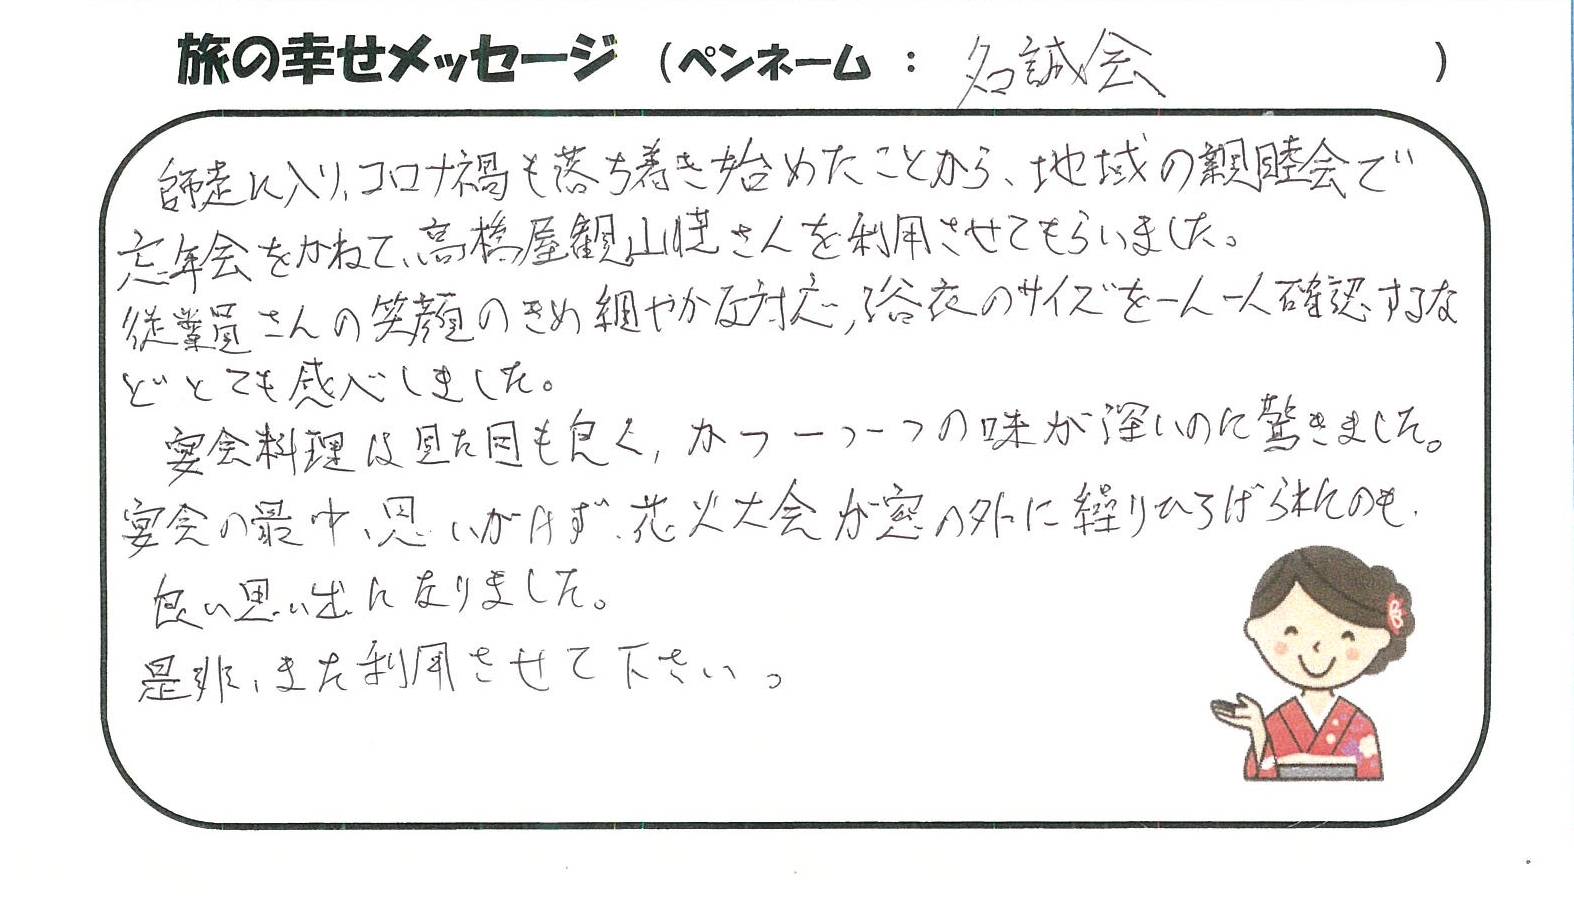 旅の幸せメッセージ (ペンネーム : 名誠会 )
師走に入り、コロナ禍も落ち着き始めたことから、地域の親睦会で
忘年会をかねて、高橋屋観山荘さんを利用させてもらいました。
従業員さんの笑顔のきめ細やかな対応,浴衣のサイズを一人一人確認するな
どとても感心しました。
宴会料理は見た目も良く,かつ一つ一つの味が深いのに驚きました。
宴会の最中、思いがけず、花火大会が窓の外に繰りひろげられたのも、
良い思い出になりました。
是非、また利用させて下さい。